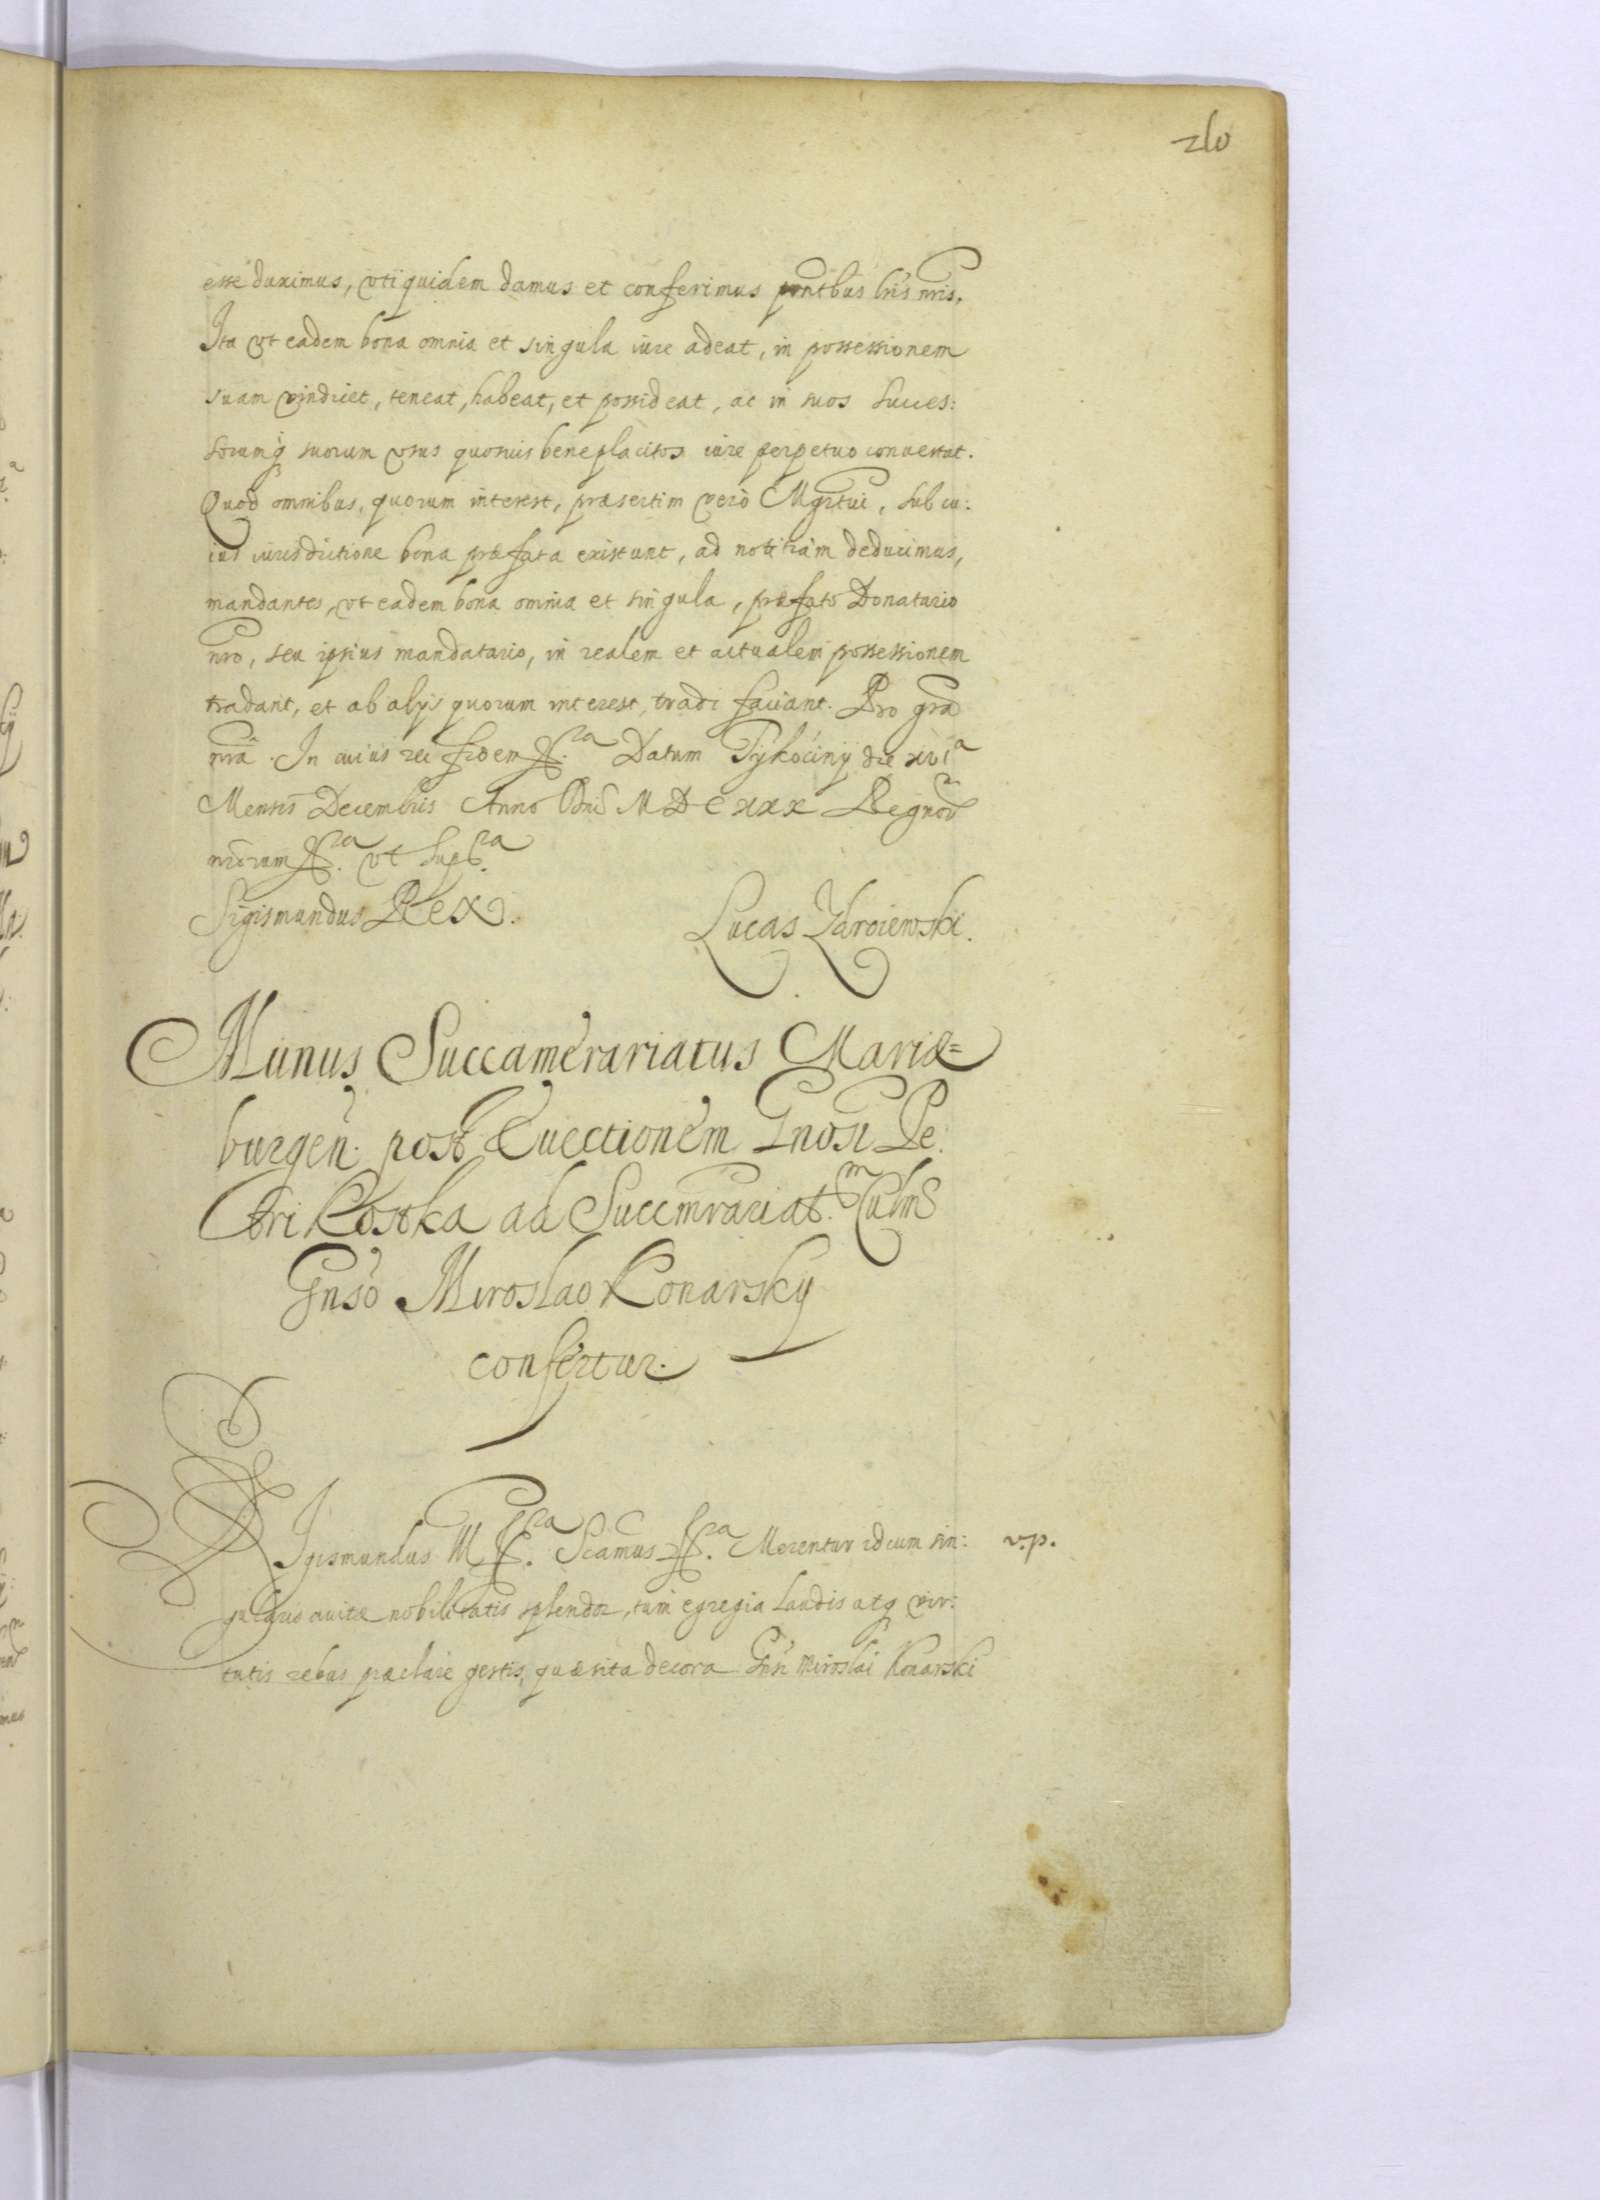 210
esse duximus, vti quidem damus et conferimus pntibus lris nris.
Ita vt eadem bona omnia et singula iure adeat, in possessionem
suam vindicet, teneat, habeat, et possideat, ac in suos succes:
sorumq suorum vsus quosuis beneplacitos iure perpetuo conuertat.
Quod omnibus, quorum interest, præsertim verò Mgrtui, sub cu:
ius iurisdictione bona præfata existunt, ad notitiam deducimus,
mandantes, vt eadem bona omnia et singula, præfato Donatario
nro, seu ipsius mandatario, in realem et actualem possessionem
tradant, et ab alijs quorum interest, tradi faciant. Pro gra
nra. In cuius rei fidem Datum Tykociny die XVIa
Mensis Decembris Anno Dni MDCXXX Regnor
nrorum vt supra
Sigismundus Rex. Lucas Zdroiewski.
Munus Succamerariatus Mariæ=
burgen. post Euectionem Gnosi Pe:
tri Kostka ad Succmrariatm Culmen
Gnso Miroslao Konarsky
confertur.
SIgismundus III Scamus Merentur id cum sin: v.p.
gularis auitæ nobilitatis splendor, tum egregia laudis atq vir:
tutis rebus præclare gestis, quæsita decora Gnsi Miroslai Konarski